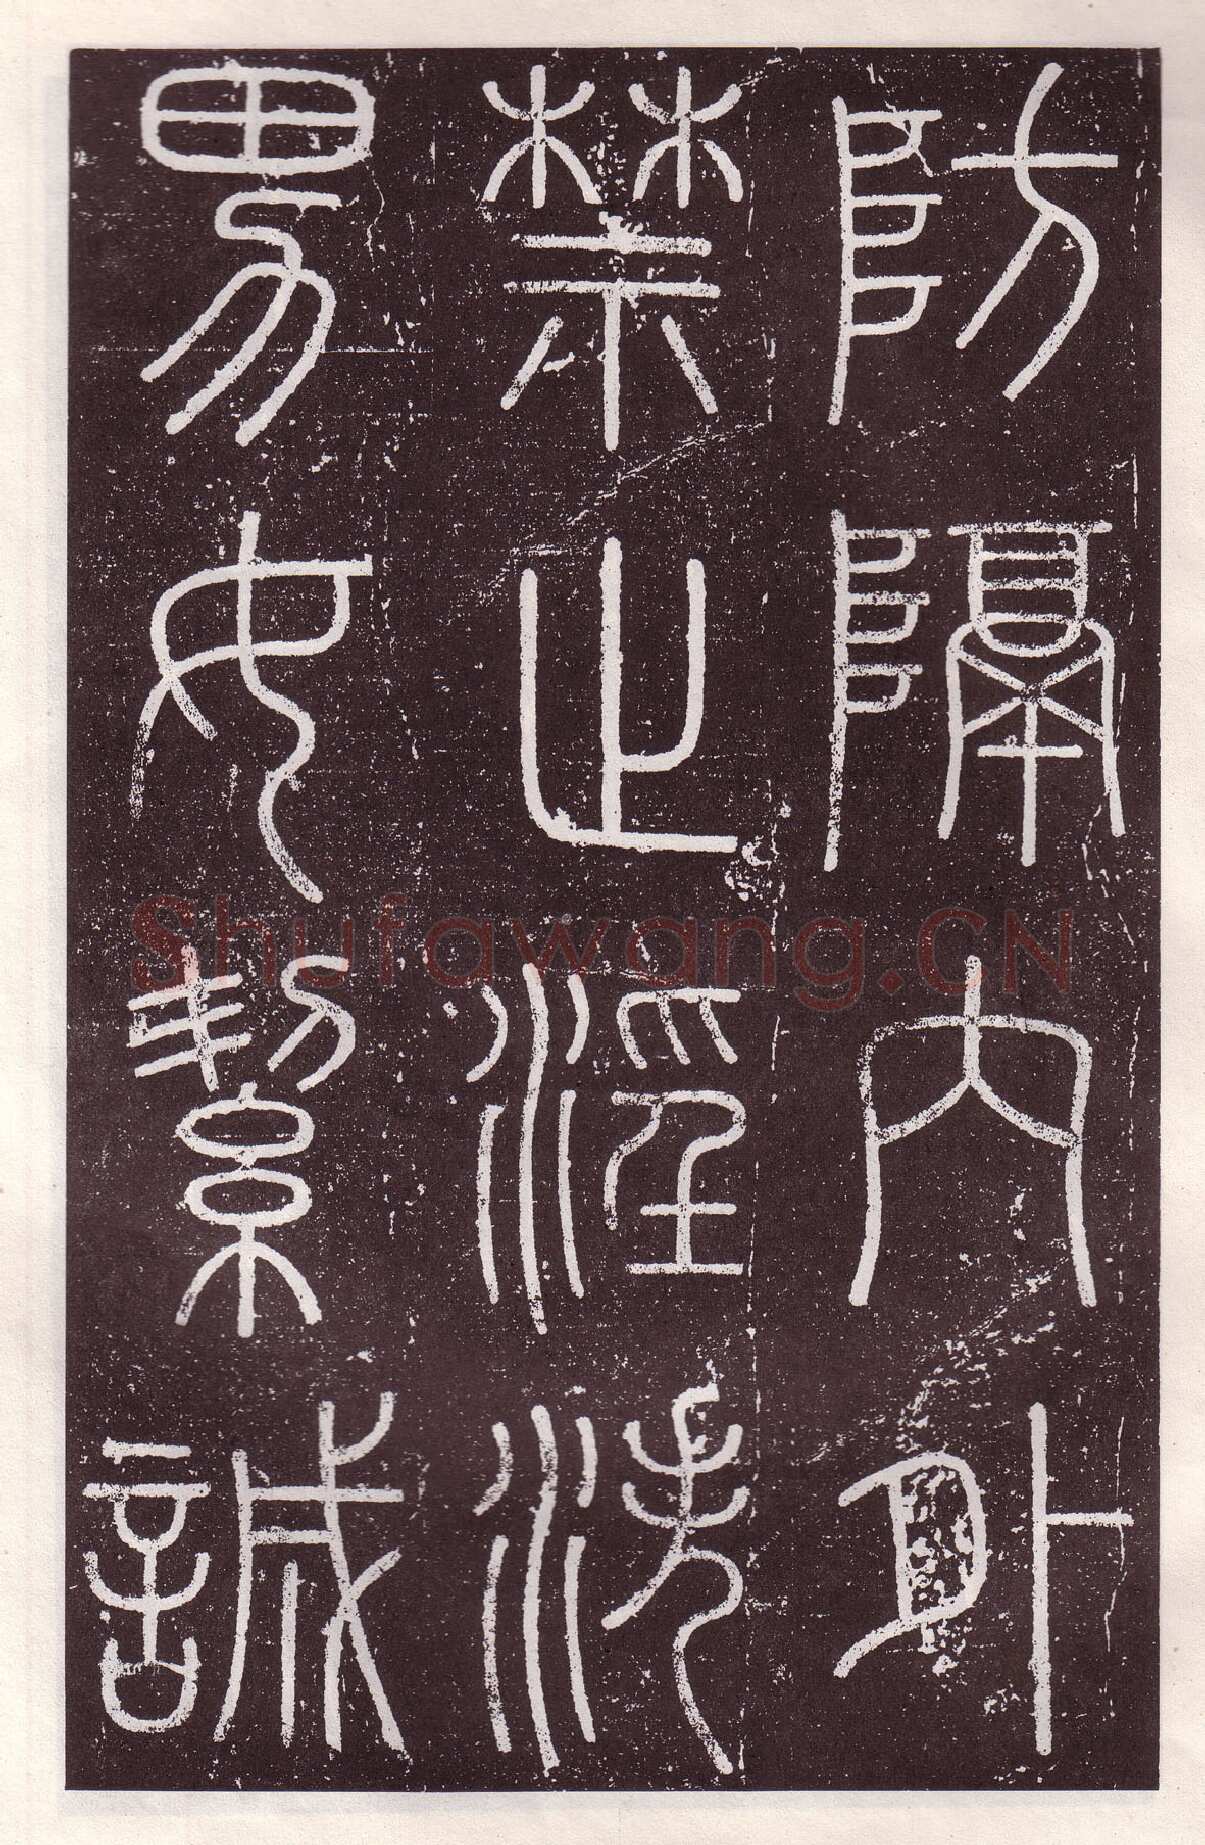 防隔内外
禁止淫泆
男女絜誠
Shufawang.CN